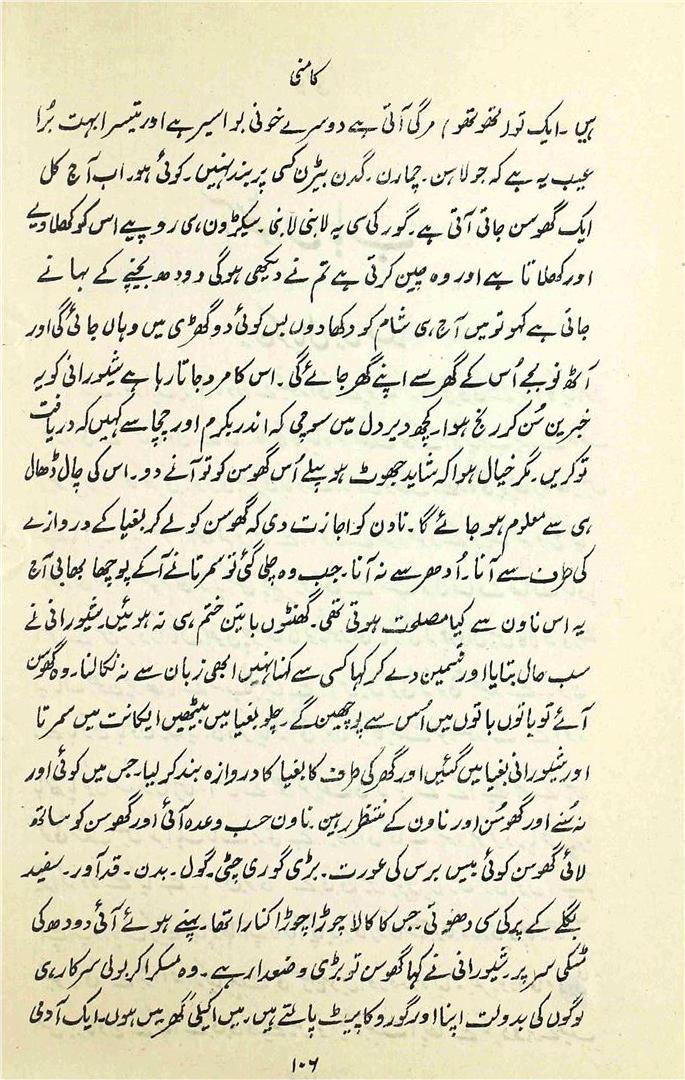 کامنی
ہیں۔ ایک تو (تھو تھو) مرگی آتی ہے دوسرے خونی بواسیر ہے اور تیسرا بہت بُرا
عیب یہ ہے کہ جولاہن۔ چمارن۔ گدن بیڑن کسی پر بند نہیں۔ کوئی ہو۔ اب آج کل
ایک گھوسن جاتی آتی ہے۔ گور کی سی یہ لانبی لانبی۔ سیکڑوں ہی روپیے اس کو کھلا دیے
اور کھلاتا ہے اور وہ چین کرتی ہے تم نے دیکھی ہوگی دودھ بیچنے کے بہانے
جاتی ہے کہو تو میں آج ہی شام کو دکھا دوں بس کوئی دو گھڑی میں وہاں جائی گی اور
آٹھ نو بجے اُس کے گھر سے اپنے گھر جائے گی۔ اس کا مرد جاتا رہا ہے شیورانی کو یہ
خبریں سُن کر رنج ہوا۔ کچھ دیر دل میں سوچی کہ اندر بکرم اور چچا سے کہیں کہ دریافت
تو کریں۔ مگر خیال ہوا کہ شاید جھوٹ ہو پہلے اُس گھوسن کو تو آنے دو۔ اس کی چال ڈھال
ہی سے معلوم ہو جائے گا۔ ناون کو اجازت دی کہ گھوسن کو لے کر بغیا کے دروازے
کی طرف سے آنا۔ اُدھر سے نہ آنا۔ جب وہ چلی گئی تو سمرتا نے آکے پوچھا بھابی آج
یہ اس ناون سے کیا مصلحت ہوتی تھی۔ گھنٹوں باتین ختم ہی نہ ہوئیں۔ شیورانی نے
سب حال بتایا اور قسمین دے کر کہا کسی سے کہنا نہیں ابھی زبان سے نہ نکالنا۔ وہ گھوسن
آئے تو باتوں باتوں میں اُس سے پوچھین گے۔ چلو بغیا میں بیٹھیں ایکانت میں سمرتا
اور شیورانی بغیا میں گئیں اور گھر کی طرف کا بغیا کا دروازہ بند کر لیا۔ جس میں کوئی اور
نہ سُنے اور گھوسُن اور ناون کے منتظر رہین۔ ناون حسب وعدہ آئی اور گھوسن کو ساتھ
لائی گھوسن کوئی بیس برس کی عورت۔ بڑی گوری چٹی۔ گول۔ بدن۔ قد آور۔ سفید
بگلے کے پر کی سی دھوتی۔ جس کا کالا چوڑا چوڑا کنارا تھا۔ پہنے ہوئے آئی دودھ کی
مٹکی سر پر۔ شیورانی نے کہا گھوسن تو بڑی وضعدار ہے۔ وہ مسکرا کر بولی سرکار ہی
لوگوں کی بدولت اپنا اور گورو کا پیٹ پالتے ہیں۔ میں اکیلی گھر میں ہوں۔ ایک آدمی
۱۰۶